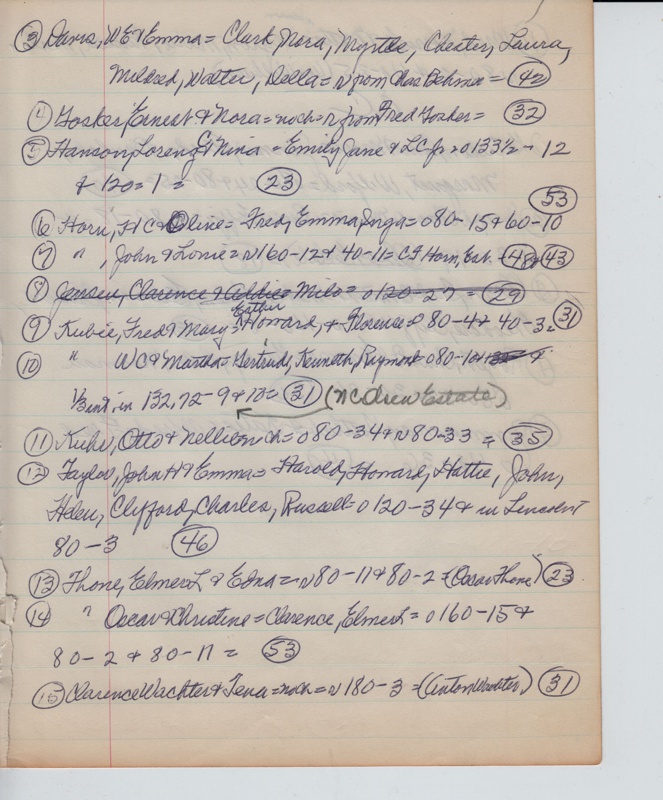 ③ Davis, WE & Emma = Clark, Nora, Myrtle, Chester, Laura,
Mildred, Walter, Della = r from Chas Behmer = 42
④ Gosker, Ernest & Nora = noch = r from Fred Gosker = 32
⑤ Hanson, Loreng C & Nina = Emily Jane & LC Jr = o 133½ - 12
& 120 = 1 = 23
53
⑥ Horn, H C & Oline = Fred, Emma, Inga = o 80 - 15 & 60 - 10
⑦ " , John & Lonie = r 160 - 12 & 40 - 11 = C F Horn, Est. - 48 & 43
⑧ Jensen, Clarence & Addie = Milo = o 120 - 27 = 29
Esther
⑨ Kubie, Fred & Mary = Howard, & Florence = o 80 - 4 & 40 - 3 = 31
⑩ " WC & Martha = Gertrud, Kenneth, Raymond = o 80 - 10 & &
⅓ int, in 132,72 - 9 & 10 = 31 (McDrew Estate)
⑪ Kuhl, Otto & Nellie = nch = o 80 - 34 & r 80 - 33 = 35
⑫ Taylor, John H & Emma = Harold, Howard, Hattie, John,
Helen, Clifford, Charles, Russell = o 120 - 34 & in Lincoln T
80 - 3 46
⑬ Thone, Elmer L & Edna = r 80 - 11 & 80 - 2 = (Oscar Thone) 23
⑭ " Oscar & Christine = Clarence, Elmer L = o 160 - 15 &
80 - 2 & 80 - 11 = 53
⑮ Clarence Wachter & Tena = noch = r 180 - 3 = (Anton Wachter) 31